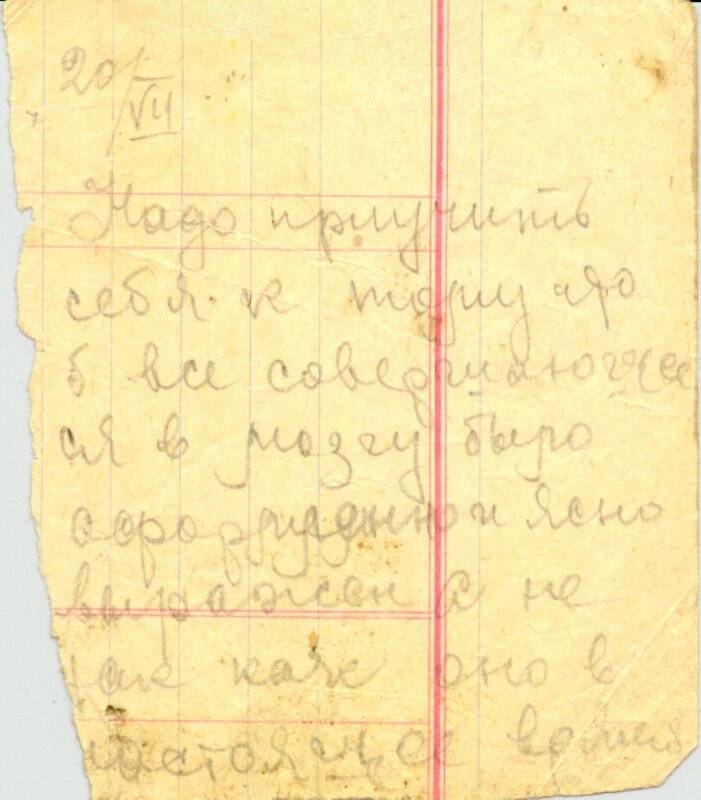 20/VII
Надо приучить
себя к тому что
б все совершающее
ся в мозгу было
оформленно и ясно
выражен а не
так как оно в
настоящее время